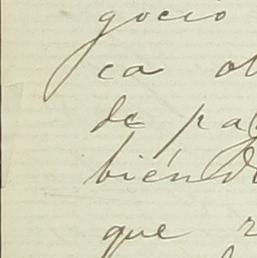 gocio
ca ot
de pag
bién d
que r